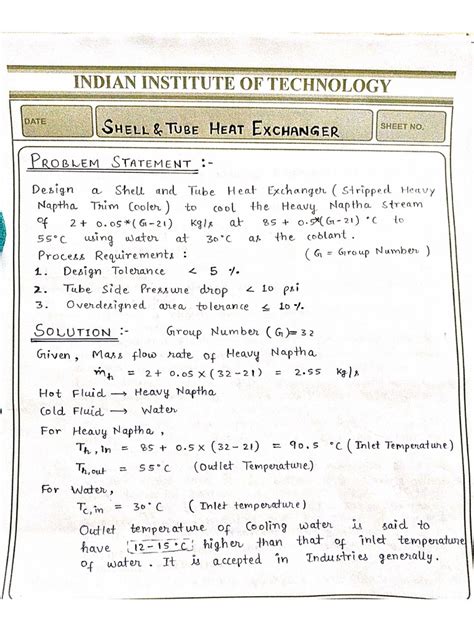 INDIAN INSTITUTE OF TECHNOLOGY
DATE
SHELL & TUBE HEAT EXCHANGER
SHEET NO.
PROBLEM STATEMENT :-
Design a Shell and Tube Heat Exchanger (Stripped Heavy
Naptha Trim Cooler) to cool the Heavy Naptha Stream
of 2 + 0.05*(G-21) Kg/s at 85 + 0.5*(G-21) °C to
55°C using water at 30°C as the coolant.
Process Requirements : (G = Group Number)
1. Design Tolerance < 5 %.
2. Tube Side Pressure drop < 10 psi
3. Overdesigned area tolerance ≤ 10 %.
SOLUTION :- Group Number (G) = 32
Given, Mass flow rate of Heavy Naptha
ṁh = 2 + 0.05 x (32-21) = 2.55 Kg/s
Hot Fluid → Heavy Naptha
Cold Fluid → Water
For Heavy Naptha,
Th,in = 85 + 0.5 x (32-21) = 90.5 °C (Inlet Temperature)
Th,out = 55°C (Outlet Temperature)
For Water,
Tc,in = 30°C (Inlet temperature)
Outlet temperature of Cooling water is said to
have 12-15°C higher than that of inlet temperature
of water. It is accepted in Industries generally.